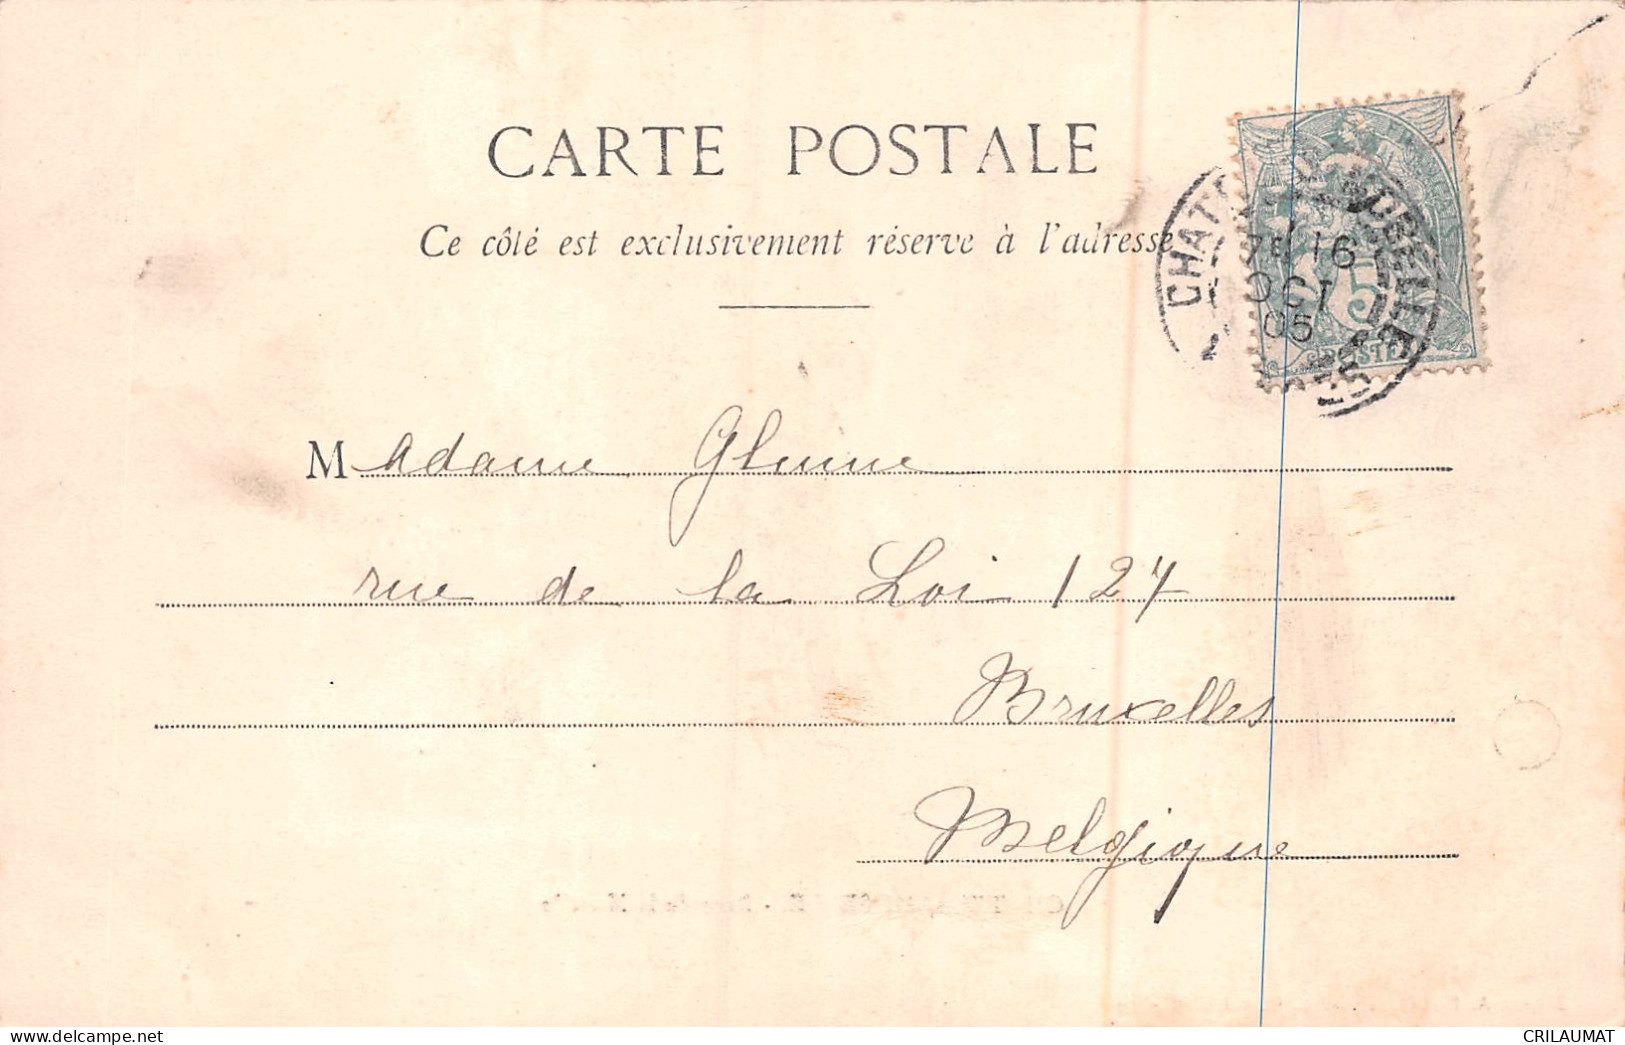 CARTE POSTALE
Ce côté est exclusivement réservé à l'adresse
7E 16
OCT
05
5
POSTES
Madame Glume
rue de la Loi 127
Bruxelles
Belgique
www.delcampe.net
CRILAUMAT